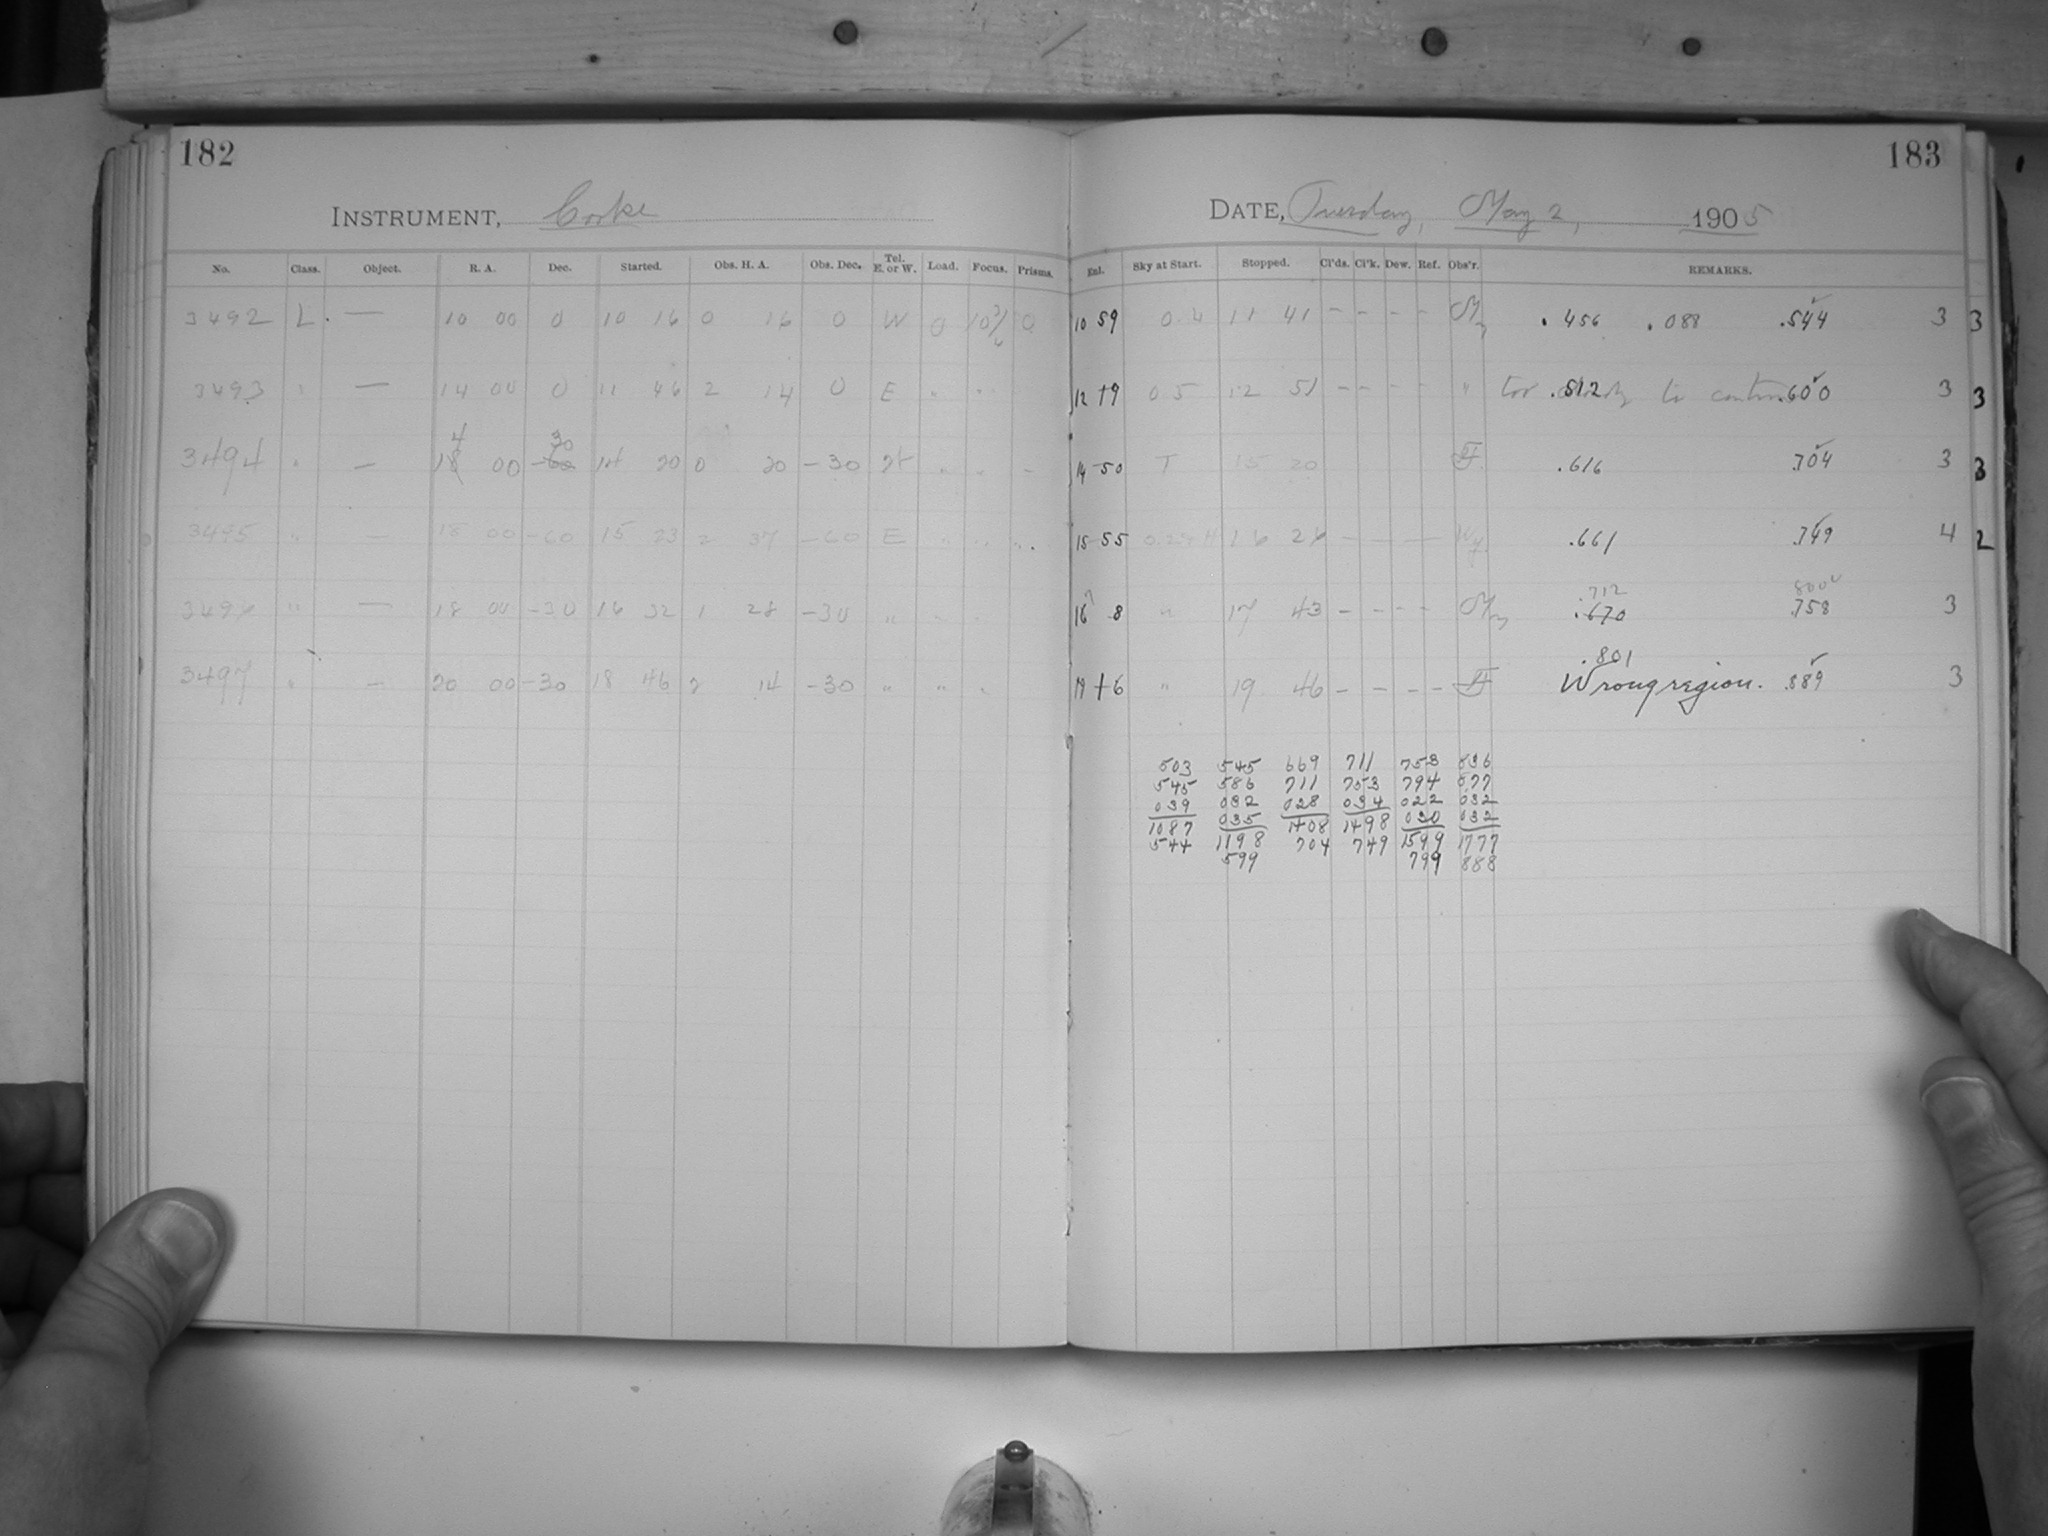 182
INSTRUMENT, Cooke
No. Class. Object. R. A. Dec. Started. Obs. H. A. Obs. Dec. Tel. E. or W. Load. Focus. Prisms.
3492 L. — 10 00 0 10 16 0 16 0 W 0
3493 " — 14 00 0 11 46 2 14 0 E " "
3494 " — 14 00 -30 14 20 0 20 -30 " " -
3495 " — 18 00 -60 15 23 2 37 -60 E " " "
3496 " — 18 00 -30 16 32 1 28 -30 "
3497 " — 20 00 -30 18 46 2 14 -30 " " "
183
DATE, Tuesday, May 2, 1905
Enl. Sky at Start. Stopped. Cl'ds. Cl'k. Dew. Ref. Obs'r. REMARKS.
10 59 0.4 11 41 - - - - .456 .088 .544 3 3
12 19 0 5 12 51 - - - - " .512 to .600 3 3
14 50 T 15 20 .616 .704 3 3
15 55 16 26 - - - .661 .749 4 2
.712 800
" 17 43 - - - - .670 .758 3
.801
19 16 " 19 46 - - - - Wrong region. .889 3
503 545 669 711 753 836
545 586 711 753 794 877
039 032 028 034 022 032
1087 035 1408 1498 030 032
544 1198 704 749 1599 1777
599 799 888